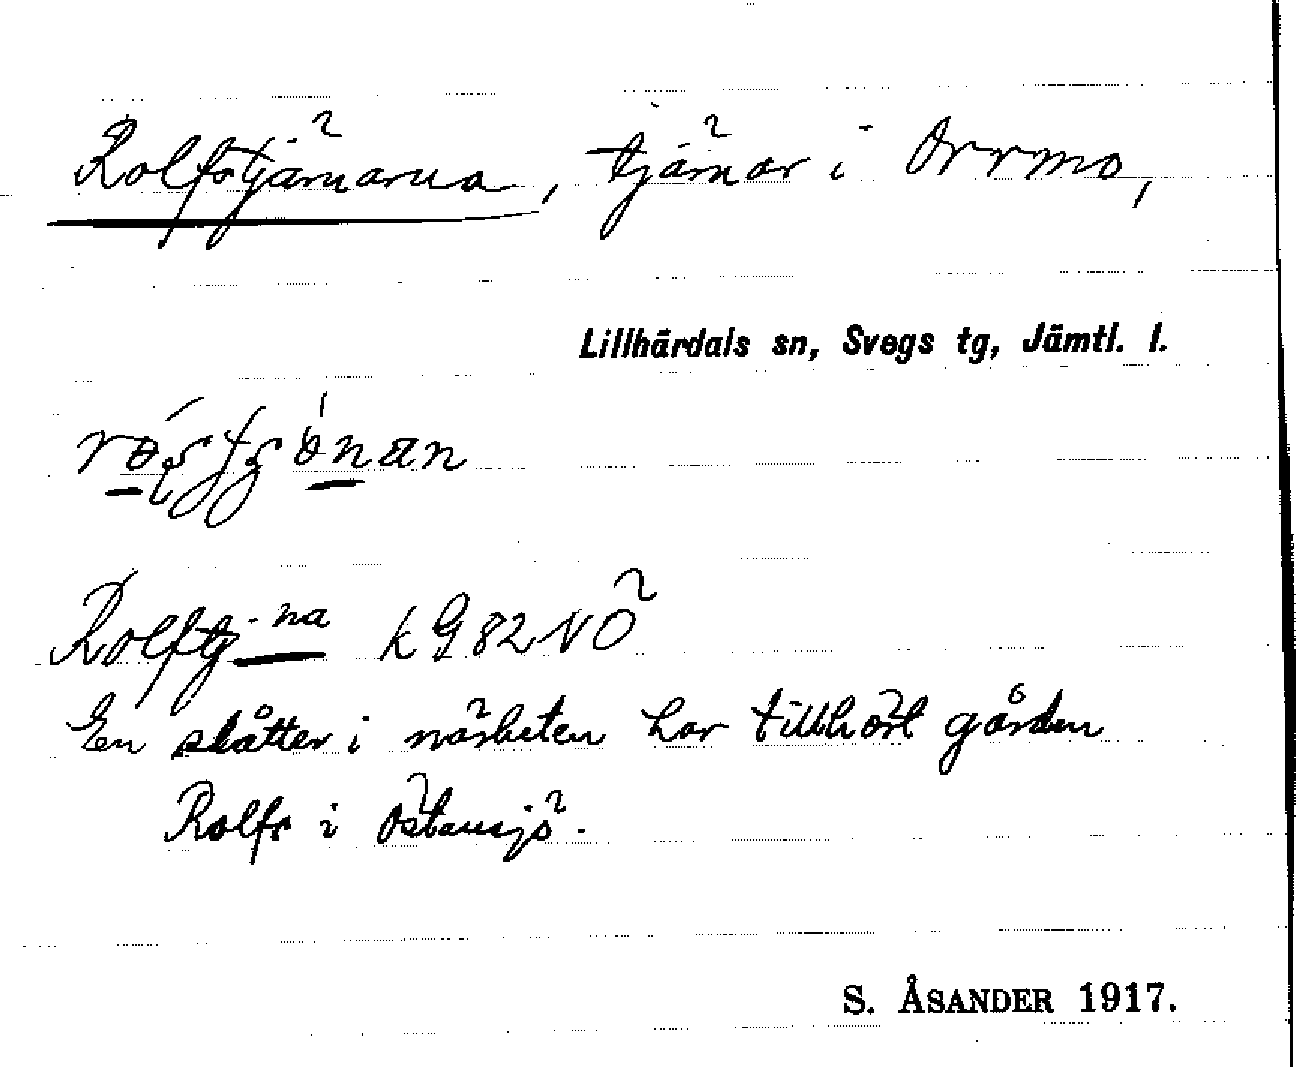 Rolfstjärnarna, tjärnar i Orrmo,
Lillhärdals sn, Svegs tg, Jämtl. l.
Rolftj-na k G 82 NÖ
En slåtter i närheten har tillhört gården
Rolfs i Östansjö.
S. ÅSANDER 1917.